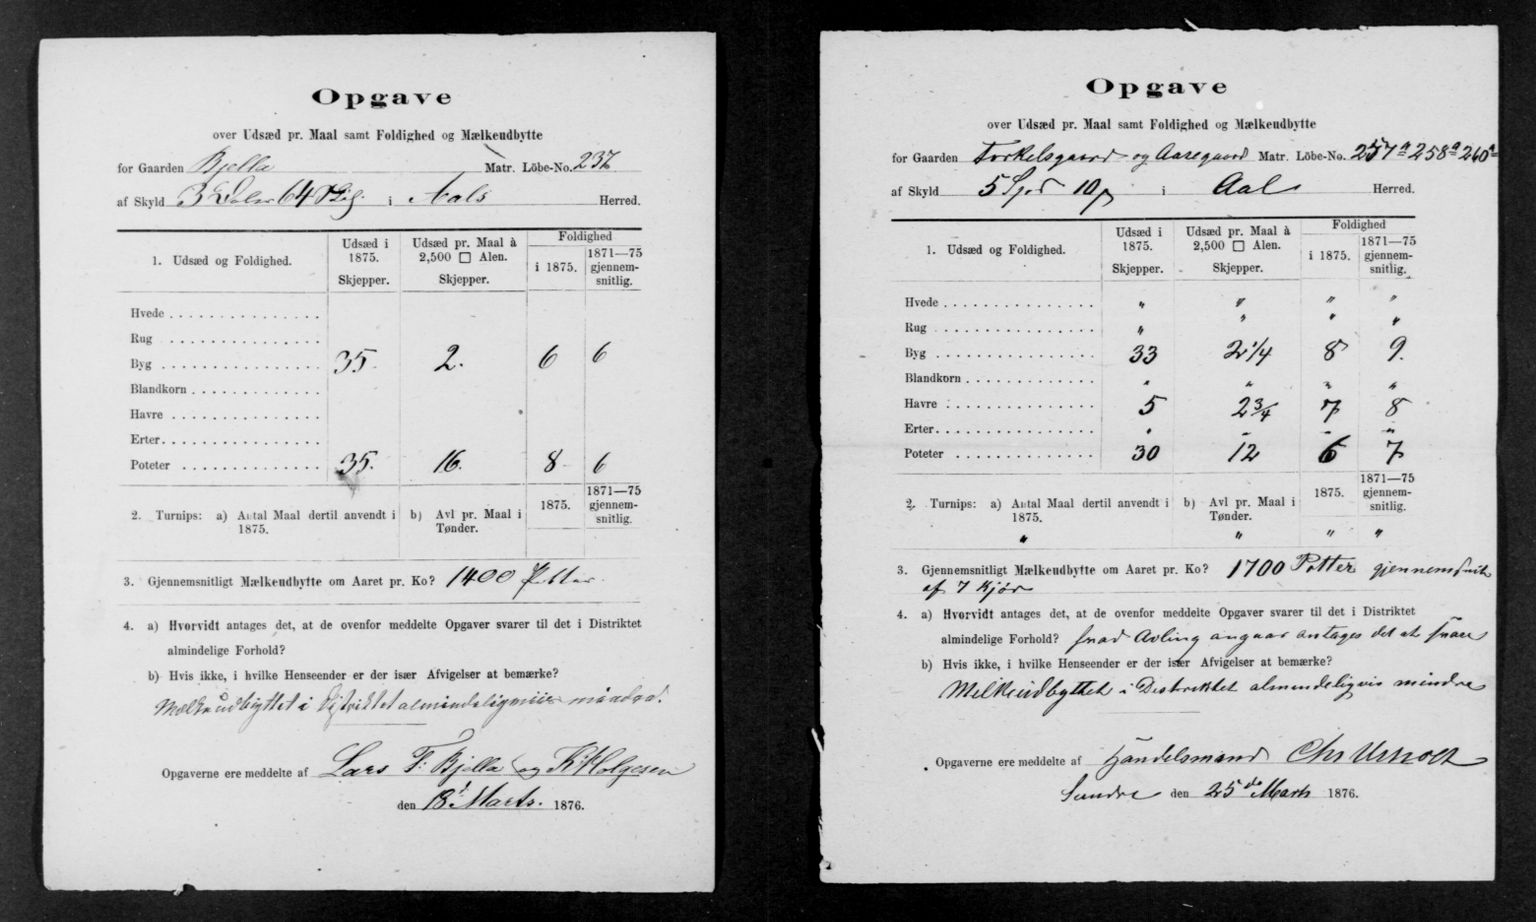 Opgave
over Udsæd pr. Maal samt Foldighed og Mælkeudbytte
for Gaarden Bjella Matr. Löbe-No. 237
af Skyld 3 Daler 64 i Aals Herred.
1. Udsæd og Foldighed.
Udsæd i 1875. Skjepper.
Udsæd pr. Maal à 2,500 □ Alen. Skjepper.
Foldighed
i 1875.
1871—75 gjennem-snitlig.
Hvede
Rug
Byg 35 2. 6 6
Blandkorn
Havre
Erter
Poteter 35. 16. 8 6
2. Turnips: a) Antal Maal dertil anvendt i 1875.
b) Avl pr. Maal i Tønder.
1875.
1871—75 gjennem-snitlig.
3. Gjennemsnitligt Mælkeudbytte om Aaret pr. Ko? 1400 Potter.
4. a) Hvorvidt antages det, at de ovenfor meddelte Opgaver svarer til det i Distriktet
almindelige Forhold?
b) Hvis ikke, i hvilke Henseender er der især Afvigelser at bemærke?
Mælkeudbyttet i Distriktet almindeligviis mindre.
Opgaverne ere meddelte af Lars T. Bjella og K. Holgesen
den 18 Marts. 1876.
Opgave
over Udsæd pr. Maal samt Foldighed og Mælkeudbytte
for Gaarden Torkelsgaard og Aasegaard Matr. Löbe-No. 257a 258a 260a
af Skyld 5 10 i Aal Herred.
1. Udsæd og Foldighed.
Udsæd i 1875. Skjepper.
Udsæd pr. Maal à 2,500 □ Alen. Skjepper.
Foldighed
i 1875.
1871—75 gjennem-snitlig.
Hvede " " " "
Rug " " " "
Byg 33 2 1/4 8 9.
Blandkorn " " " "
Havre 5 2 3/4 7 8
Erter " " " "
Poteter 30 12 6 7
2. Turnips: a) Antal Maal dertil anvendt i 1875. "
b) Avl pr. Maal i Tønder. "
1875. "
1871—75 gjennem-snitlig. "
3. Gjennemsnitligt Mælkeudbytte om Aaret pr. Ko? 1700 Potter gjennemsnit
af 7 Kjør
4. a) Hvorvidt antages det, at de ovenfor meddelte Opgaver svarer til det i Distriktet
almindelige Forhold? hvad Avling angaar antages det at svare
b) Hvis ikke, i hvilke Henseender er der især Afvigelser at bemærke?
Melkeudbyttet i Distriktet almindeligvis mindre
Opgaverne ere meddelte af Handelsmand Chr
Sundre den 25de Marts 1876.